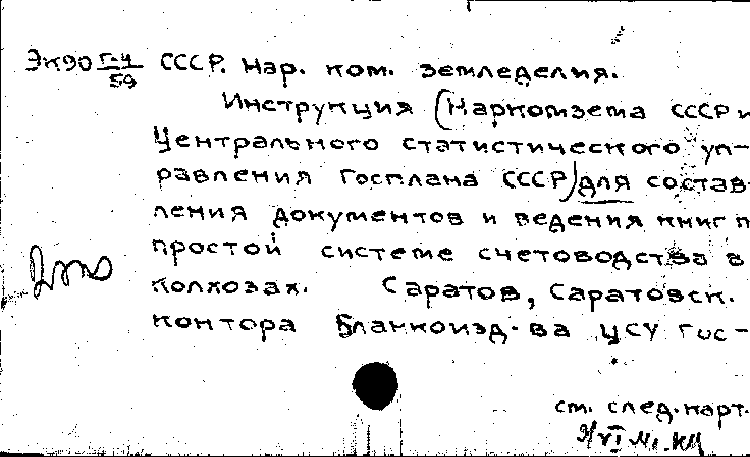 Эк90 Г-4/59 СССР. Нар. ком. земледелия.
Инструкция (Наркомзема СССР и
Центрального статистического уп-
равления Госплана СССР) для состав-
ления документов и ведения книг п
простой системе счетоводства в
колхозах. Саратов, Саратовск.
контора Бланкоизд-ва ЦСУ Гос-
см. след. карт.